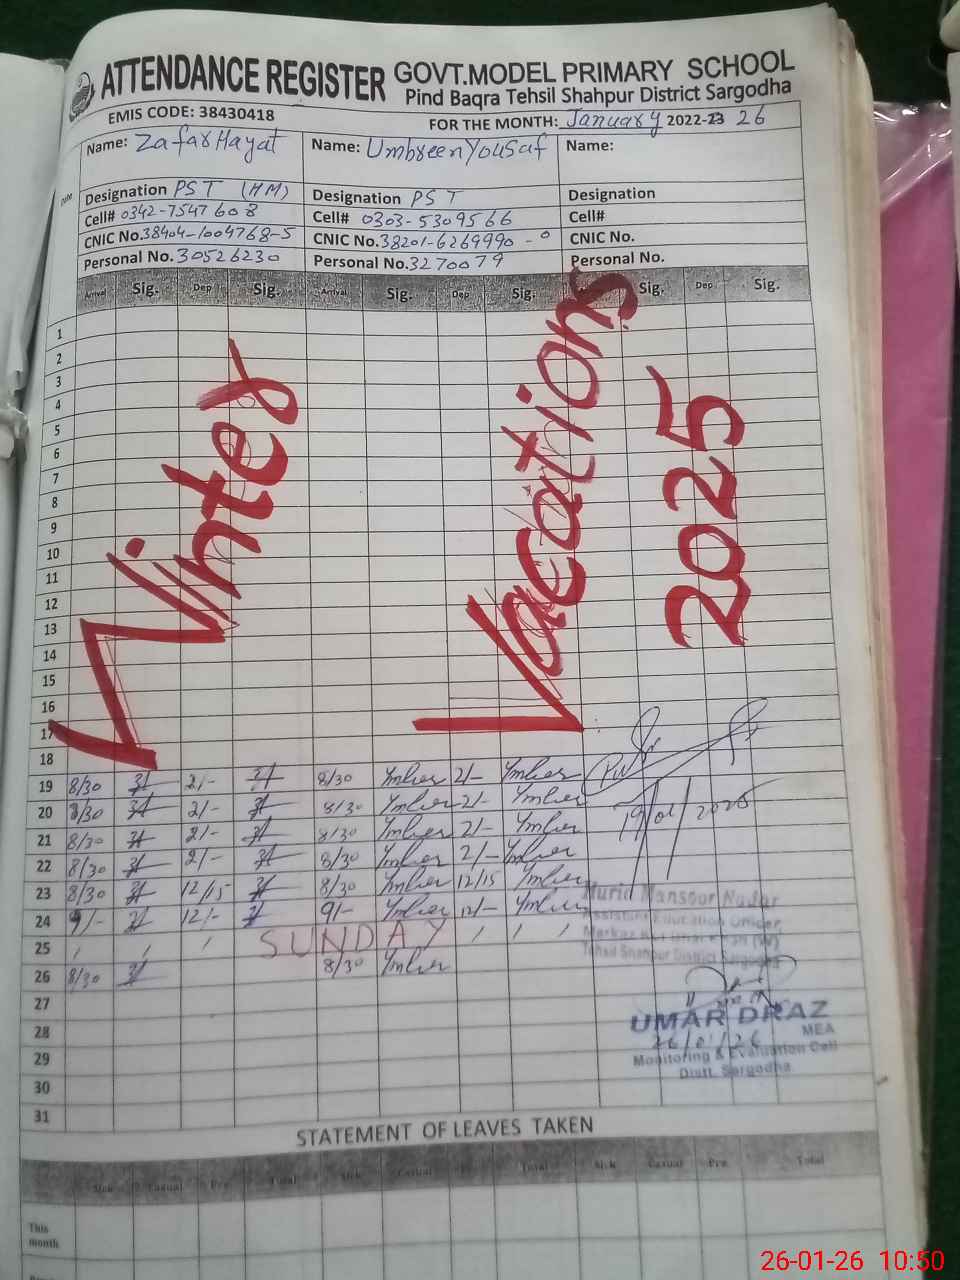 ATTENDANCE REGISTER GOVT.MODEL PRIMARY SCHOOL
Pind Baqra Tehsil Shahpur District Sargodha
EMIS CODE: 38430418
FOR THE MONTH: January 2022-23 26
Date
Name: Zafar Hayat Name: Umbreen Yousaf Name:
Designation PST (HM) Designation PST Designation
Cell# 0342-7547608 Cell# 0303-5309566 Cell#
CNIC No.38404-1004768-5 CNIC No.38201-6269990-0 CNIC No.
Personal No.30526230 Personal No.3270079 Personal No.
Arrival Sig. Dep Sig. Arrival Sig. Dep Sig. Sig. Dep Sig.
Winter Vacations 2025
1
2
3
4
5
6
7
8
9
10
11
12
13
14
15
16
17
18
19 8/30 2/- 8/30 2/-
20 8/30 2/- 8/30 2/-
21 8/30 2/- 8/30 2/-
22 8/30 2/- 8/30 2/-
23 8/30 12/15 8/30 12/15
24 9/- 12/- 9/- 12/-
25 SUNDAY
26 8/30 8/30
27
28
29
30
31
Assistant Education Officer
Tehsil Shahpur District Sargodha
UMAR DRAZ
MEA
26/01/26
Monitoring & Evaluation Cell
Distt. Sargodha
STATEMENT OF LEAVES TAKEN
Sick Casual Pre. Total Sick Casual Total Sick Casual Pre. Total
This
month
26-01-26 10:50